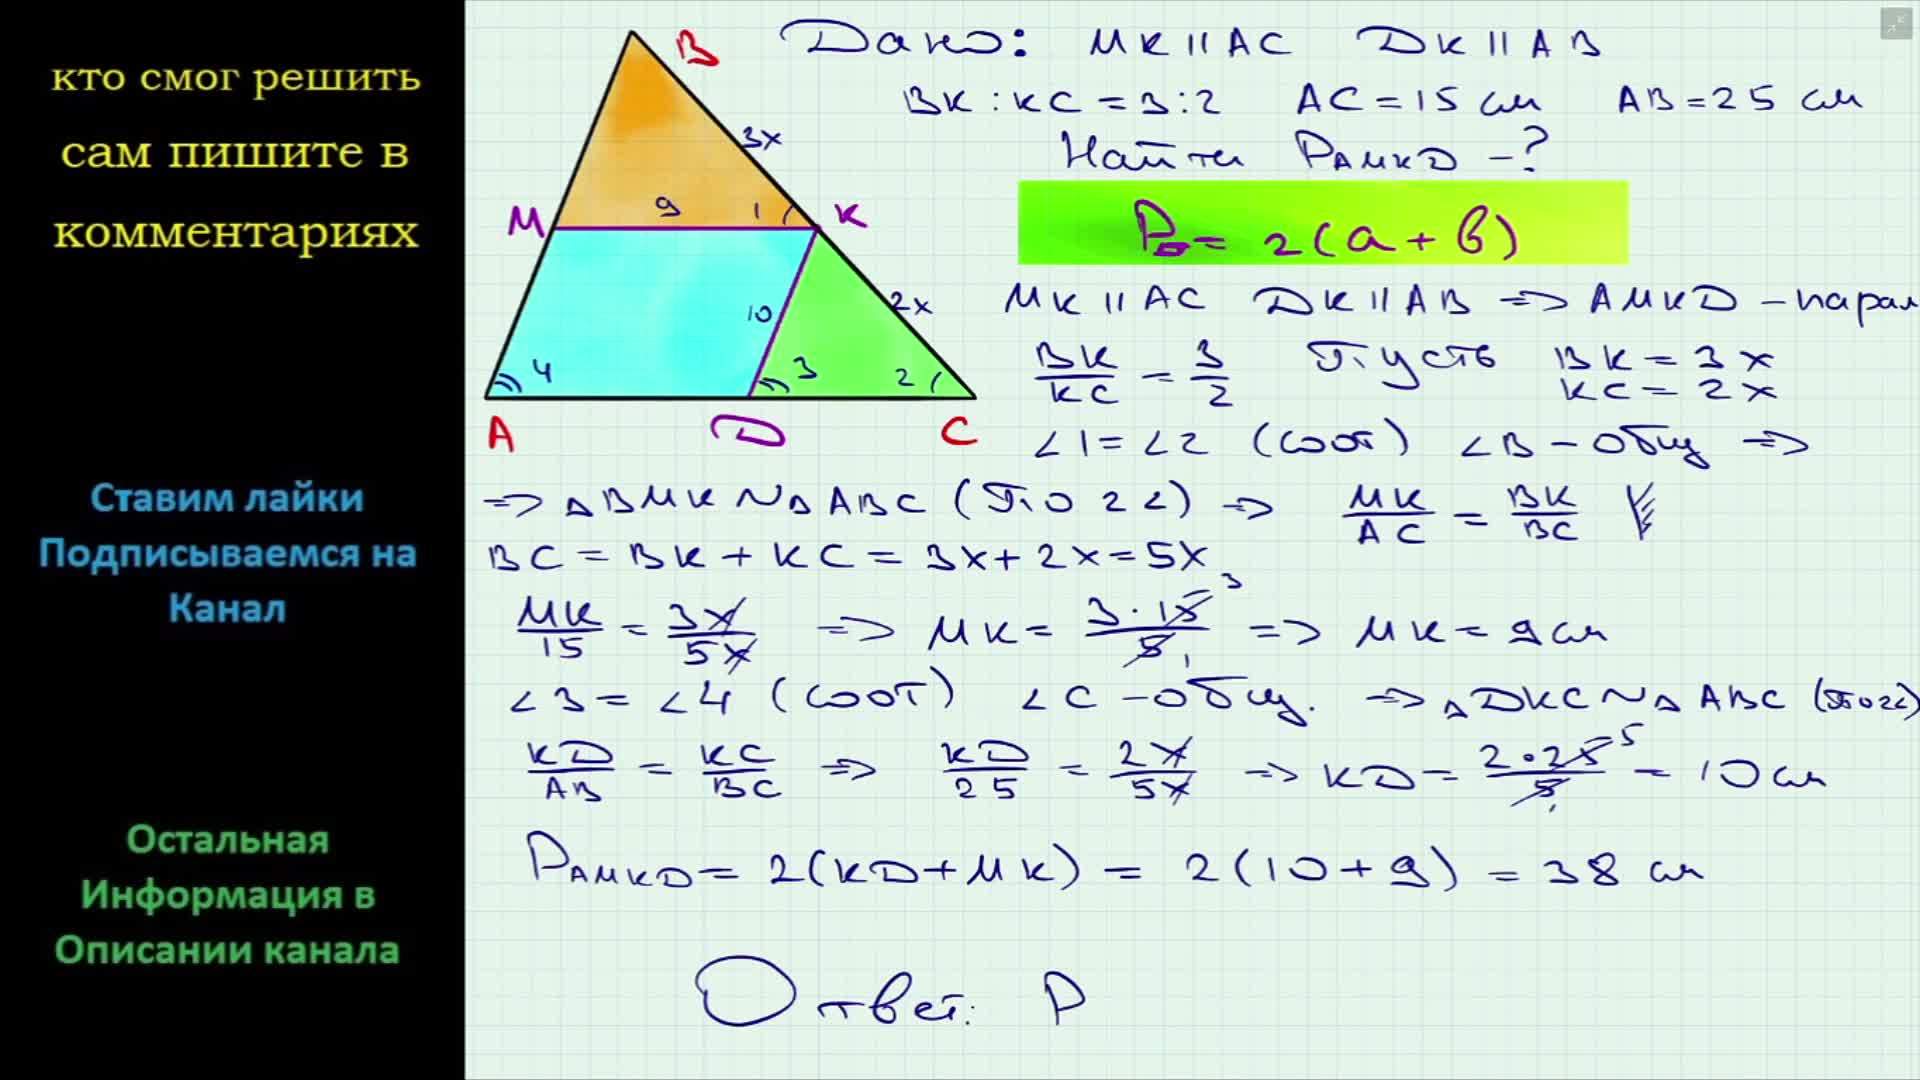 кто смог решить
сам пишите в
комментариях
Ставим лайки
Подписываемся на
Канал
Остальная
Информация в
Описании канала
B
3x
M 9 1 K
10 2x
4 3 2
A D C
Дано: MK || AC DK || AB
BK : KC = 3 : 2 AC = 15 см AB = 25 см
Найти PAMKD - ?
P▱ = 2(a + b)
MK || AC DK || AB => AMKD - парал
BK/KC = 3/2 Пусть BK = 3x
KC = 2x
∠1 = ∠2 (соот) ∠B - общ =>
=> △BMK ~ △ABC (по 2∠) => MK/AC = BK/BC
BC = BK + KC = 3x + 2x = 5x
MK/15 = 3x/5x => MK = 3·15/5 3 1 => MK = 9 см
∠3 = ∠4 (соот) ∠C - общ. => △DKC ~ △ABC (по 2∠)
KD/AB = KC/BC => KD/25 = 2x/5x => KD = 2·25/5 5 1 = 10 см
PAMKD = 2(KD + MK) = 2(10 + 9) = 38 см
Ответ: P